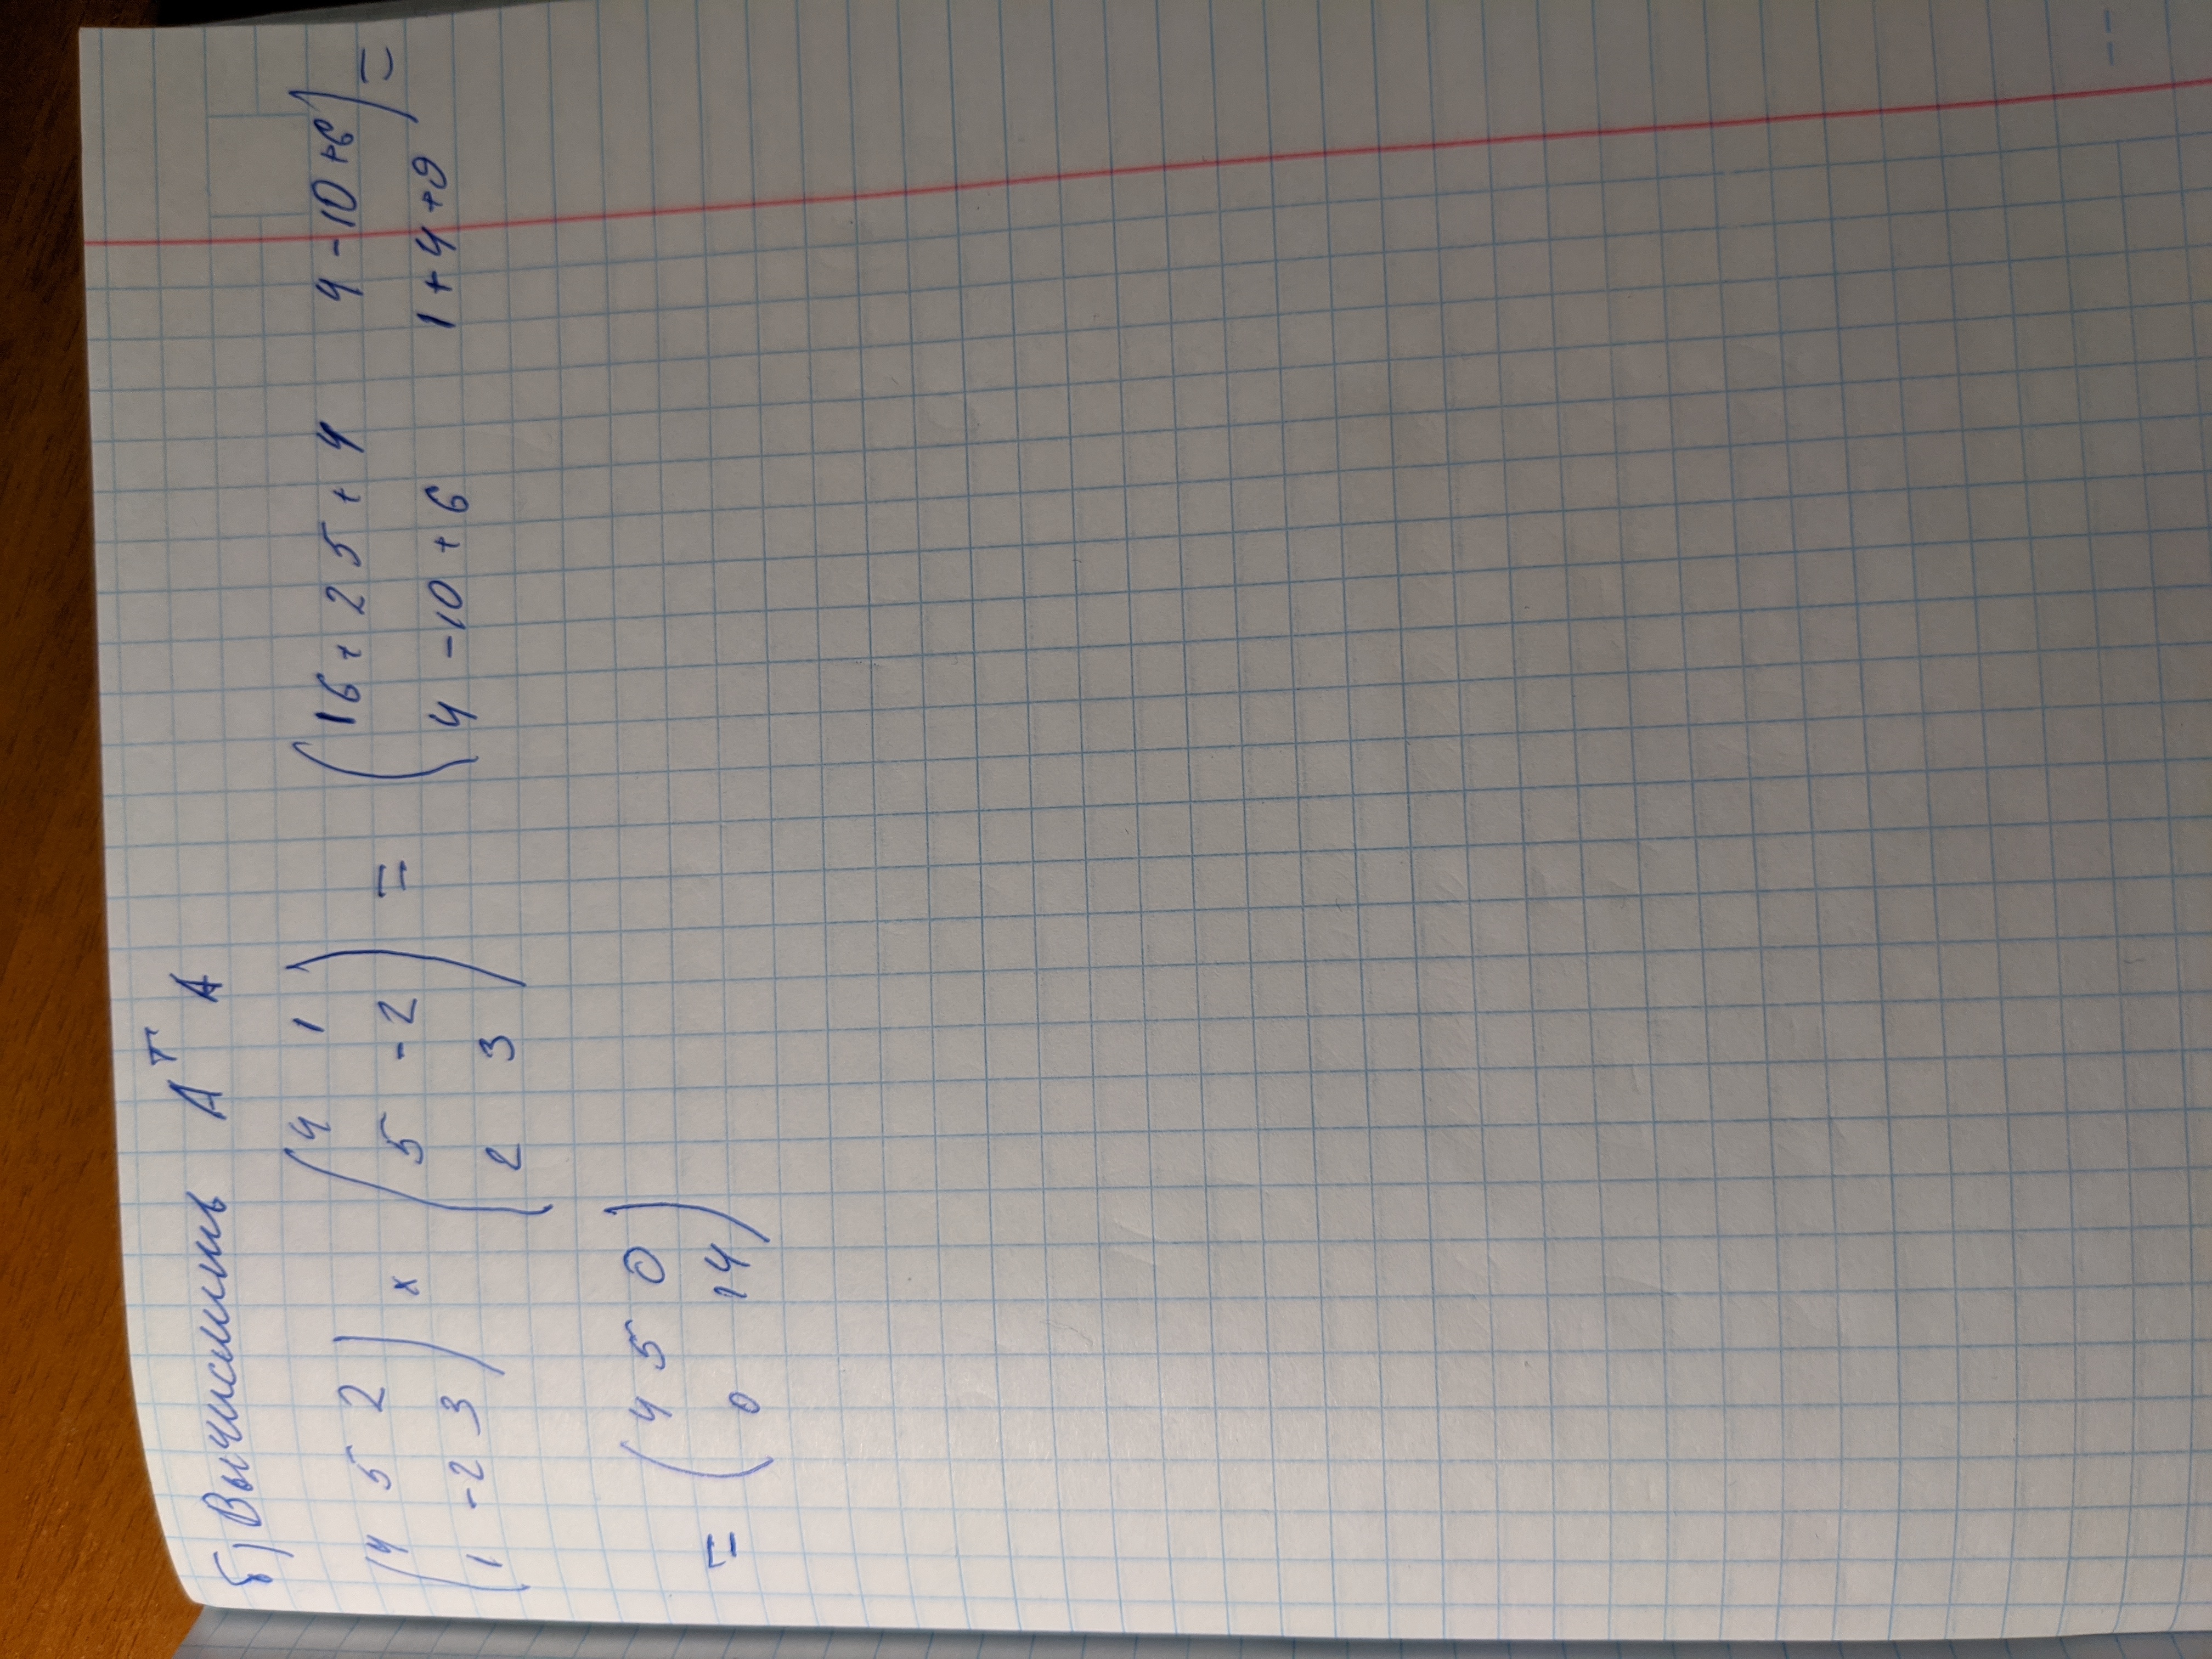 б) Вычислить Aᵀ A
(4 5 2; 1 -2 3) x (4 1; 5 -2; 2 3) = (16 + 25 + 4 4 - 10 + 6; 4 - 10 + 6 1 + 4 + 9) =
= (45 0; 0 14)